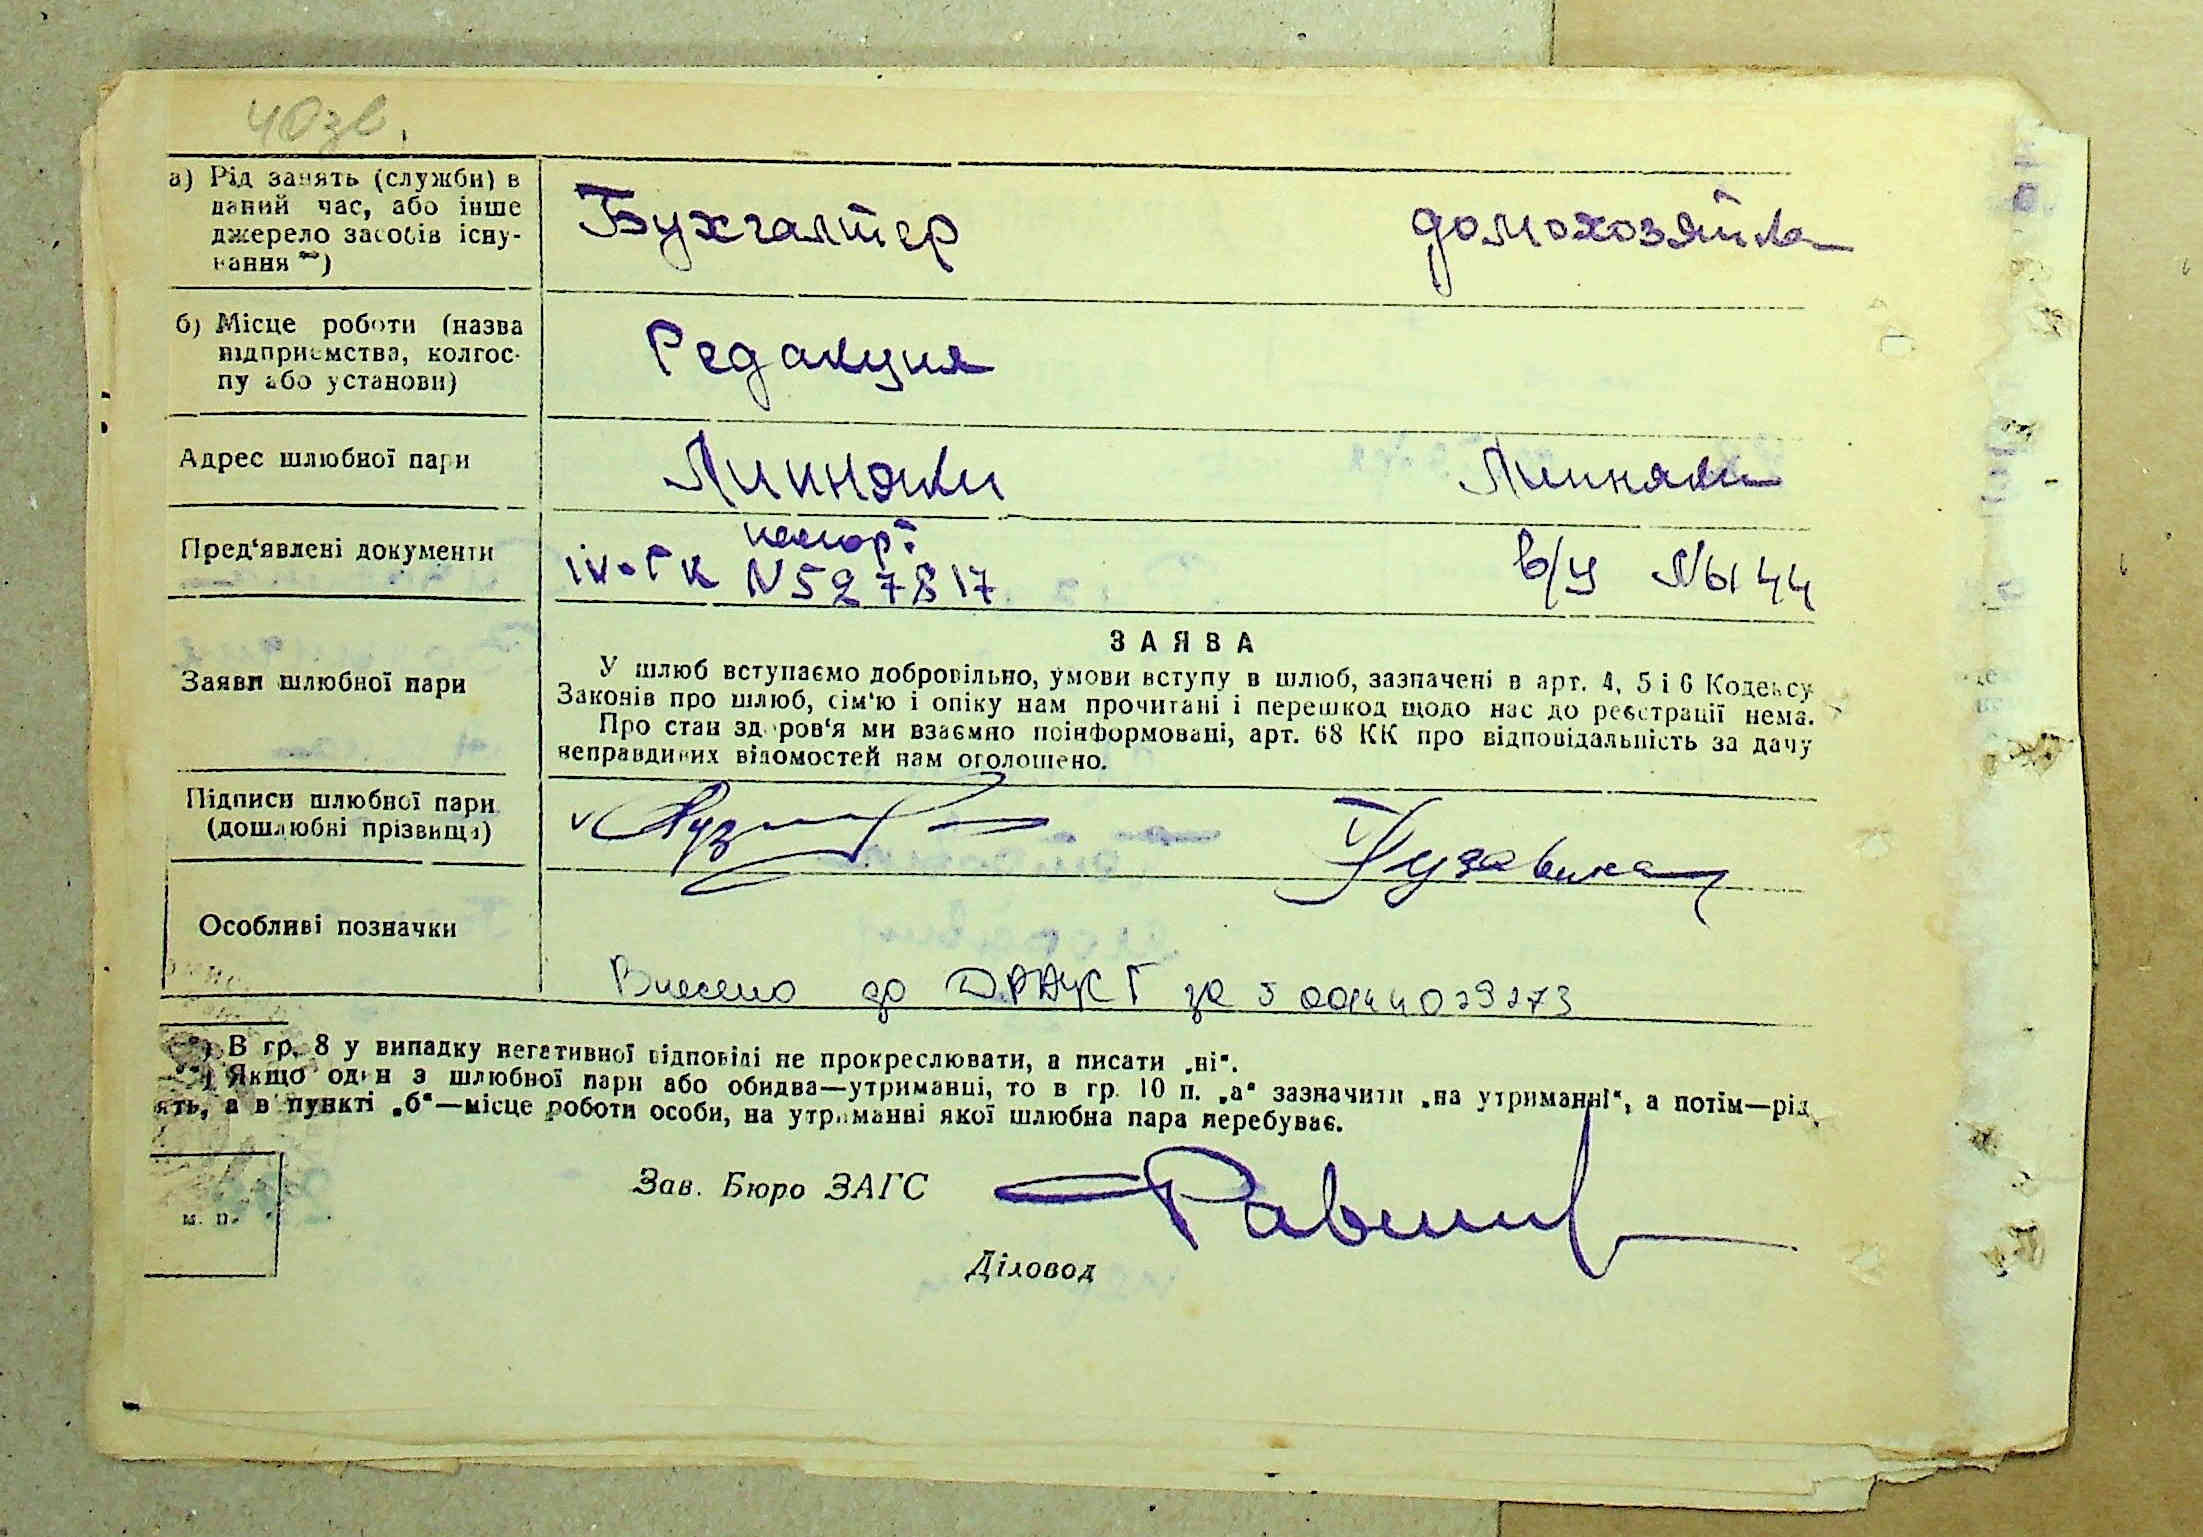 40зв.
а) Рід занять (служби) в
даний час, або інше
джерело засобів існу-
вання **)
Бухгалтер
домохозяйка
б) Місце роботи (назва
підприємства, колгос-
пу або установи)
Редакция
Адрес шлюбної пари
Липняки
Липняки
Пред'явлені документи
паспорт
IV-ГК N 527817
в/у №
Заяви шлюбної пари
ЗАЯВА
У шлюб вступаємо добровільно, умови вступу в шлюб, зазначені в арт. 4, 5 і 6 Кодексу
Законів про шлюб, сім'ю і опіку нам прочитані і перешкод щодо нас до реєстрації нема.
Про стан здоров'я ми взаємно поінформовані, арт. 68 КК про відповідальність за дачу
неправдивих відомостей нам оголошено.
Підписи шлюбної пари
(дошлюбні прізвища)
Особливі позначки
Внесено до ДРАЦСГ за
*) В гр. 8 у випадку негативної відповіді не прокреслювати, а писати „ні“.
**) Якщо один з шлюбної пари або обидва—утриманці, то в гр. 10 п. „а“ зазначити „на утриманні“, а потім—рід
ять, а в пункті „б“—місце роботи особи, на утриманні якої шлюбна пара перебуває.
Зав. Бюро ЗАГС
м. п.
Діловод